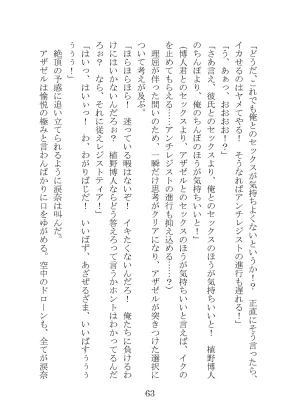 「どうだ、これでも俺とのセックスが気持ちよくないというか！？　正直にそう言ったら、
イカせるのはヤメてやる！　そうなればアンチレジストの進行も遅れる！」
「う、あぁっ、おおおお！？」
「さあ言え、彼氏とのセックスより、俺とのセックスのほうが気持ちいいと！　植野博人
のちんぽより、俺のちんぽのほうが気持ちいいと！」
（博人君とのセックスより、アザゼルとのセックスのほうが気持ちいいと言えば、イクの
を止めてもらえる……？　アンチレジストの進行も抑え込める……？）
　理屈が伴った問いのため、一瞬だけ思考がクリアになり、アザゼルが突きつけた選択に
ついて考えが及ぶ。
「ほらほらほら！　迷っている暇はないぞ！　イキたくないんだろ！　俺たちに負けるわ
けにはいかないんだろぉ？　植野博人ならどう答えろって言うかホントはわかってるんだ
ろぉ？　なら、それに従えレジスティア！」
「はいっ、はいぃっ！　わ、わがりばじだ！　いいばず、あざぜるざま、いいばすぅぅぅ
ぅぅぅ！」
　絶頂の予感に追い立てられるように涙奈は叫んだ。
　アザゼルは愉悦の極みと言わんばかりに口をゆがめる。空中のドローンも、全てが涙奈
63